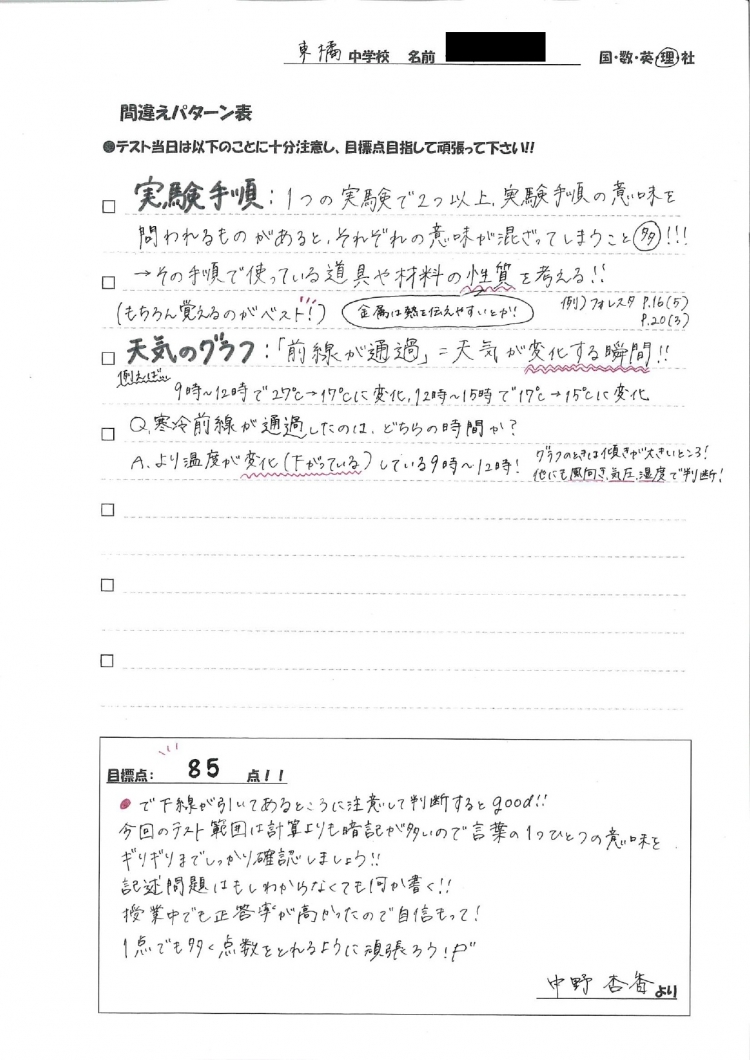 東橘 中学校 名前 国・数・英・理・社
間違えパターン表
●テスト当日は以下のことに十分注意し、目標点目指して頑張って下さい!!
□ 実験手順：1つの実験で2つ以上、実験手順の意味を
問われるものがあると、それぞれの意味が混ざってしまうこと多!!!
□ →その手順で使っている道具や材料の性質を考える!!
(もちろん覚えるのがベスト!) 金属は熱を伝えやすいとか! 例) フォレスタ P.16(5)
P.20(3)
□ 天気のグラフ：「前線が通過」=天気が変化する瞬間!!
例えば…
9時~12時で27℃→17℃に変化、12時~15時で17℃→15℃に変化
□ Q.寒冷前線が通過したのは、どちらの時間か?
A.より温度が変化(下がっている)している9時~12時! グラフのときは傾きが大きいところ!
他にも風向き、気圧、湿度で判断!
□
□
□
目標点： 85 点!!
●で下線が引いてあるところに注意して判断するとgood!!
今回のテスト範囲は計算よりも暗記が多いので言葉の1つひとつの意味を
ギリギリまでしっかり確認しましょう!!
記述問題はもしわからなくても何か書く!!
授業中でも正答率が高かったので自信もって!
1点でも多く点数をとれるように頑張ろう!
中野 杏香より